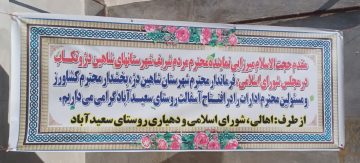 مقدم حجت الاسلام میرزایی نماینده محترم مردم شریف شهرستانهای شاهین دژ و تکاب
در مجلس شورای اسلامی، فرماندار محترم شهرستان شاهین دژ، بخشدار محترم کشاورز
و مسئولین محترم ادارات را در افتتاح آسفالت روستای سعیدآباد گرامی می داریم.
از طرف: اهالی، شورای اسلامی و دهیاری روستای سعیدآباد